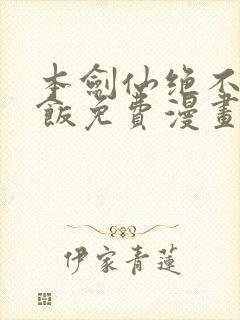 本劍仙绝不
飯免費漫畫
伊家青蓮